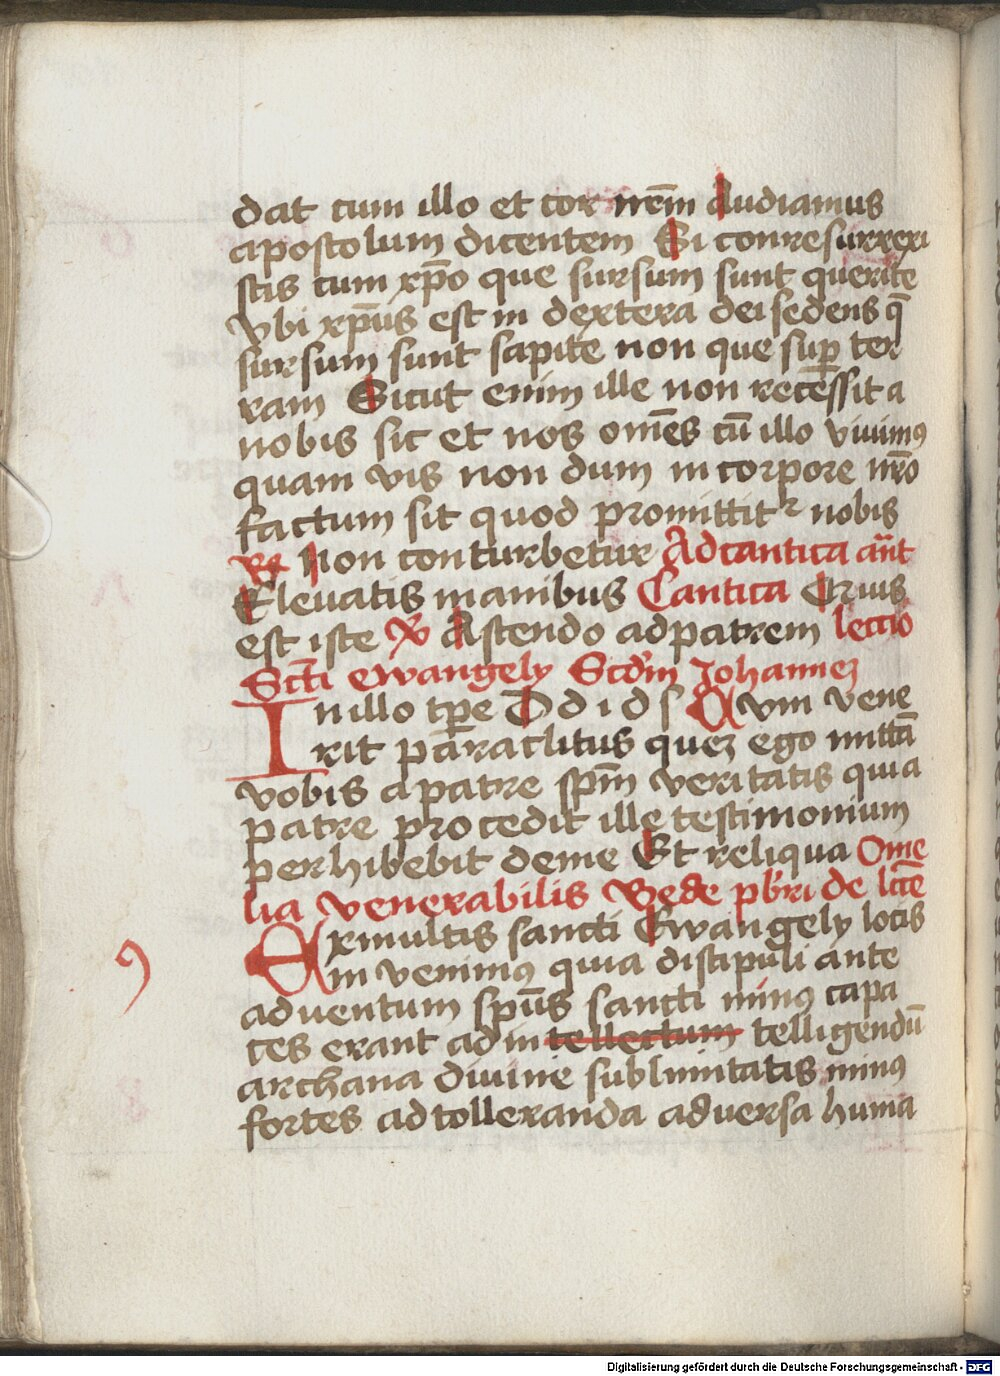 dat cum illo et cor nr̄m Audiamus
apostolum dicentem Si conresurrexi
stis cum xp̄o que sursum sunt querite
vbi xp̄us est in dextera dei sedens q̄
sursum sunt sapite non que sup̲ ter
ram Sicut enim ille non recessit a
nobis sic et nos om̄es cū illo viuimꝰ
quam vis non dum in corpore nr̄o
factum sit quod promittitᷣ nobis
R̷ Non conturbetur Ad cantica an̄t
Eleuatis manibus Cantica Q̄uis
est iste ℣ Ascendo ad patrem leccio
Sct̄i ewangelÿ Scd̄m Johannez
In illo tp̄e D d i d s Cvm vene
rit paraclitus quez ego mittā
vobis a patre sp̄m veritatis qui a
patre procedit ille testimonium
perhibebit de me Et reliqua Ome
lia venerabilis Bede pb̄ri de
Ex multis sancti Ewangelÿ locis
in venimꝰ quia discipuli ante
aduentum sp̄us sancti minꝰ capa
ces erant ad in tellectum telligendū
archana diuine sublimitatis minꝰ
fortes ad tolleranda aduersa huma
Digitalisierung gefördert durch die Deutsche Forschungsgemeinschaft - DFG